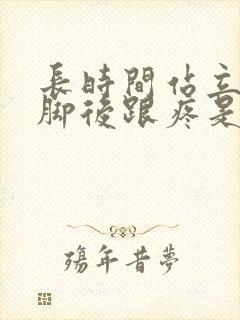 長時間佔立
腳後跟疼是
殤年昔夢